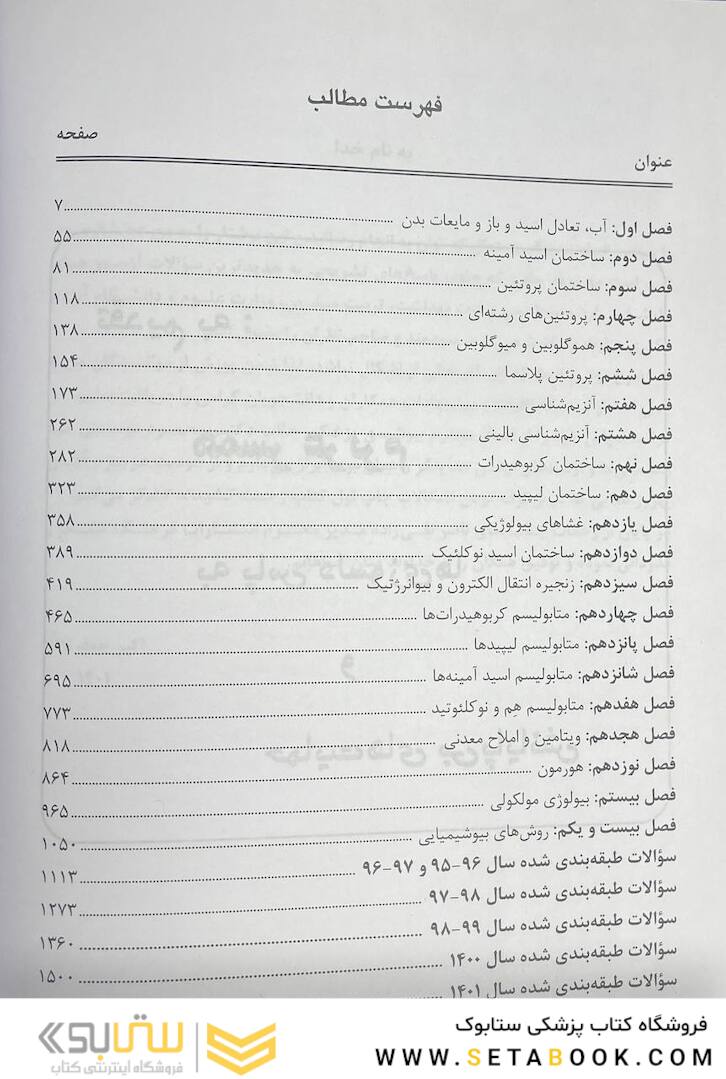 فهرست مطالب
عنوان صفحه
فصل اول: آب، تعادل اسید و باز و مایعات بدن ۷
فصل دوم: ساختمان اسید آمینه ۵۵
فصل سوم: ساختمان پروتئین ۸۱
فصل چهارم: پروتئین‌های رشته‌ای ۱۱۸
فصل پنجم: هموگلوبین و میوگلوبین ۱۳۸
فصل ششم: پروتئین پلاسما ۱۵۴
فصل هفتم: آنزیم‌شناسی ۱۷۳
فصل هشتم: آنزیم‌شناسی بالینی ۲۶۲
فصل نهم: ساختمان کربوهیدرات ۲۸۲
فصل دهم: ساختمان لیپید ۳۲۳
فصل یازدهم: غشاهای بیولوژیکی ۳۵۸
فصل دوازدهم: ساختمان اسید نوکلئیک ۳۸۹
فصل سیزدهم: زنجیره انتقال الکترون و بیوانرژتیک ۴۱۹
فصل چهاردهم: متابولیسم کربوهیدرات‌ها ۴۶۵
فصل پانزدهم: متابولیسم لیپیدها ۵۹۱
فصل شانزدهم: متابولیسم اسید آمینه‌ها ۶۹۵
فصل هفدهم: متابولیسم هِم و نوکلئوتید ۷۷۳
فصل هجدهم: ویتامین و املاح معدنی ۸۱۸
فصل نوزدهم: هورمون ۸۶۴
فصل بیستم: بیولوژی مولکولی ۹۶۵
فصل بیست و یکم: روش‌های بیوشیمیایی ۱۰۵۰
سؤالات طبقه‌بندی شده سال ۹۶-۹۵ و ۹۷-۹۶ ۱۱۱۳
سؤالات طبقه‌بندی شده سال ۹۸-۹۷ ۱۲۷۳
سؤالات طبقه‌بندی شده سال ۹۹-۹۸ ۱۳۶۰
سؤالات طبقه‌بندی شده سال ۱۴۰۰ ۱۵۰۰
سؤالات طبقه‌بندی شده سال ۱۴۰۱
فروشگاه کتاب پزشکی ستابوک
WWW.SETABOOK.COM
ستابوک
فروشگاه اینترنتی کتاب